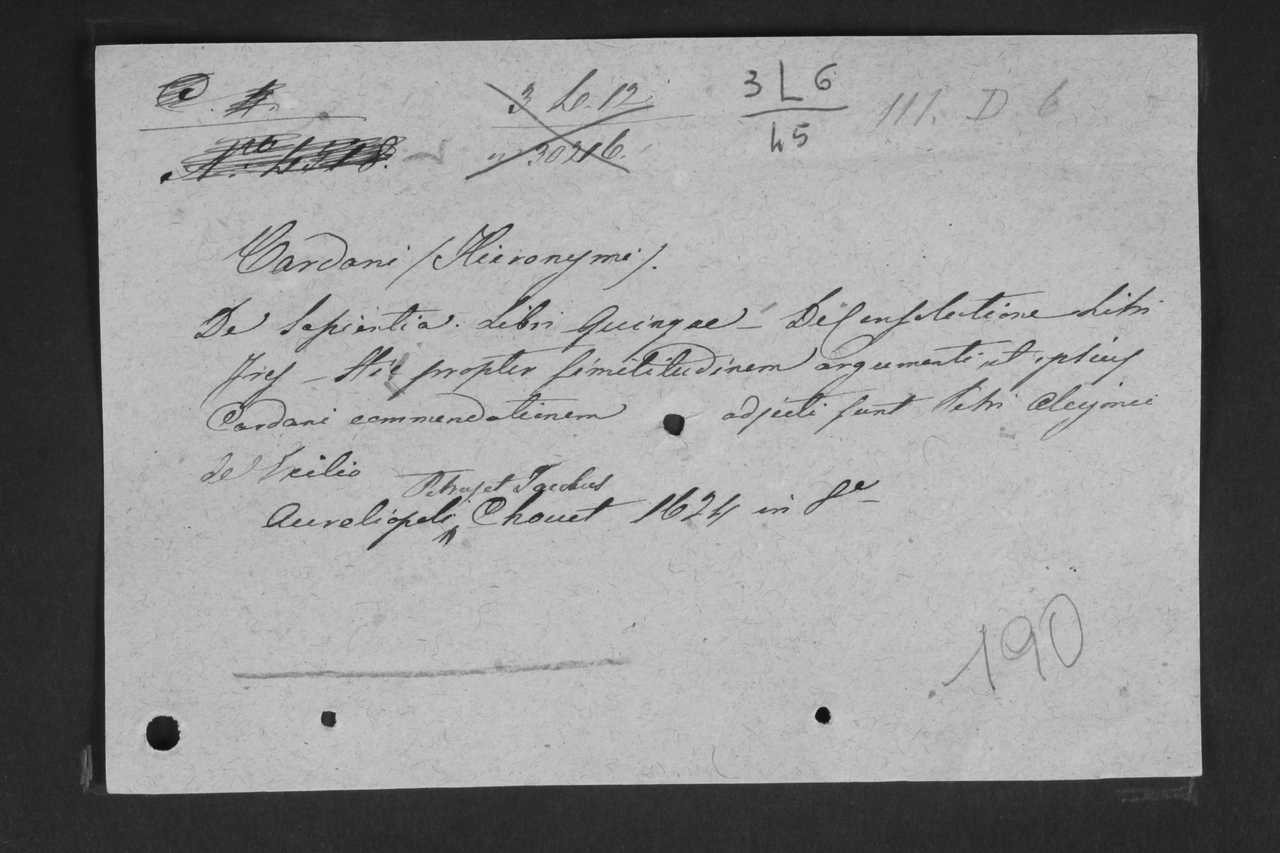 3 L. 12
30216.
3 L 6
45
III. D 6
Cardani (Hieronymi).
De Sapientia. Libri Quinque – De Consolatione Libri
Tres – His propter similitudinem argumenti, et ipsius
Cardani commendationem adjecti sunt Petri Alcyonii
de Exilio
Petrus et Jacobus
Aureliopoli Chouet 1624 in 8º
190